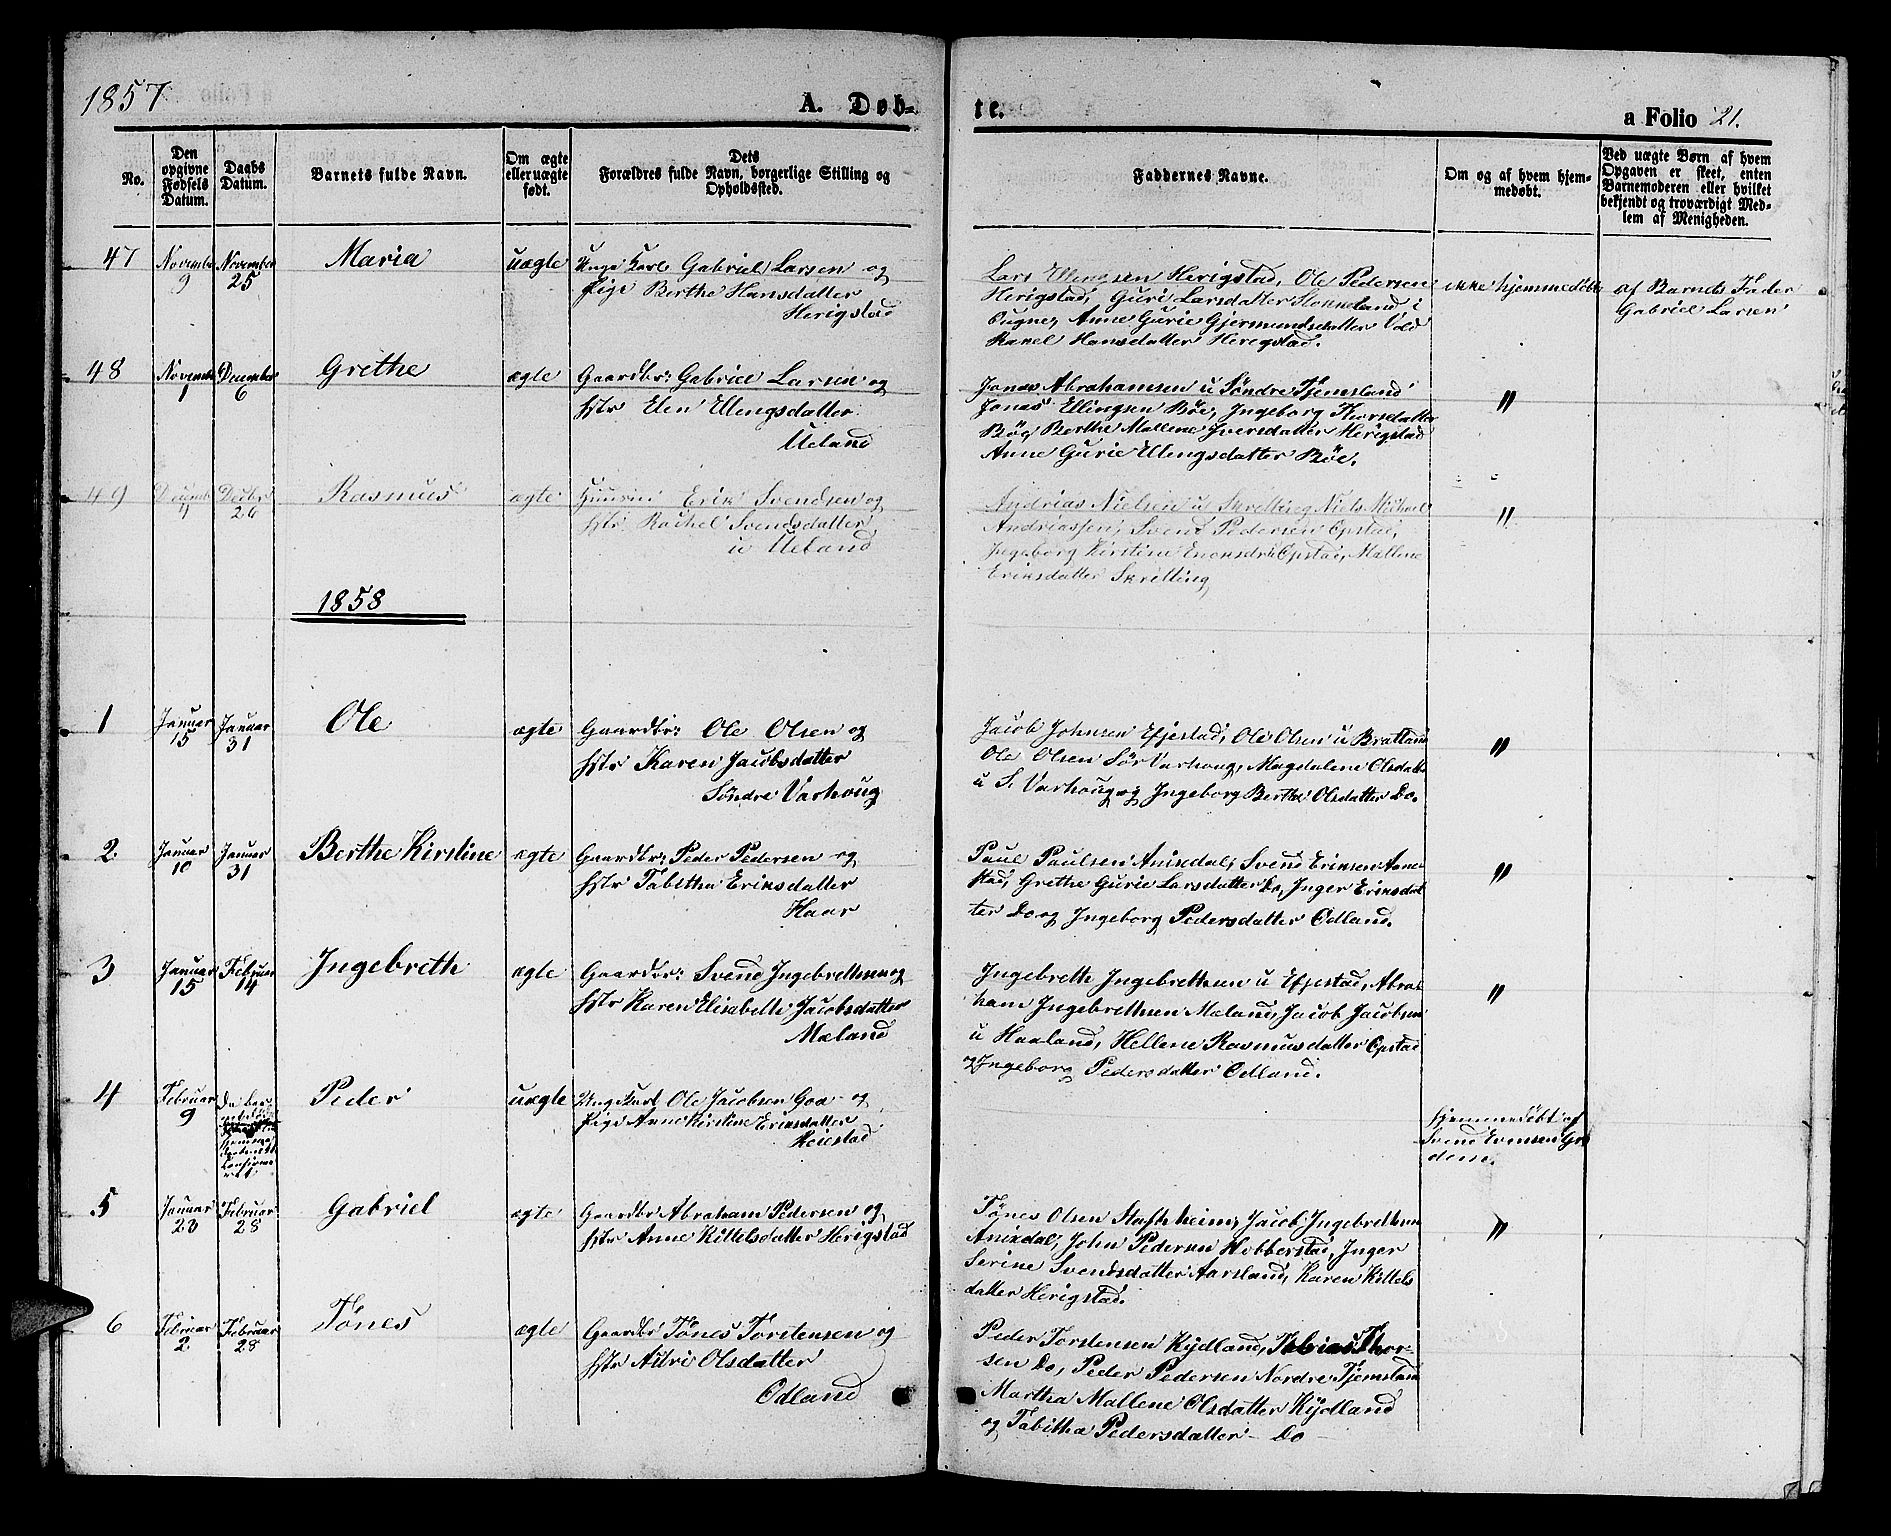 1857
A. Døb-
te.
a Folio 21.
No.
Den opgivne Fødsels Datum.
Daabs Datum.
Barnets fulde Navn.
Om ægte eller uægte født.
Dets Forældres fulde Navn, borgerlige Stilling og Opholdssted.
Faddernes Navne.
Om og af hvem hjemmedøbt.
Ved uægte Børn af hvem Opgaven er skeet, enten Barnemoderen eller hvilket bekjendt og troværdigt Medlem af Menigheden.
47
November 9
November 25
Maria
uægte
Unge Karl Gabriel Larsen og
Pige Berthe Hansdatter
Herigstad
Lars Ellingsen Herigstad, Ole Pedersen
Herigstad, Guri Larsdatter Honneland i
Ougne, Anne Gurie Gjermundsdatter Vold
Hansdatter Herigstad.
ikke hjemmedøbt
af Barnets Fader
Gabriel Larsen
48
November 1
December 6
Grethe
ægte
Gaardbr: Gabriel Larsen og
hstr Elen Ellengsdatter
Ueland
Jonas Abrahamsen u Søndre Tjemsland
Jonas Ellingsen Bøe, Ingeborg Thorsdatter
Bøe, Berthe Mallene Iversdatter Herigstad
Anne Gurie Ellengsdatter Bøe.
"
49
Decemb 4
Decbr 26
Rasmus
ægte
Erik Svendsen og
hstr Rachel Svendsdatter
u Ueland
Andrias Nielsen u Skretting, Niels Michael
Andriassen, Svend Pedersen Opstad,
Ingeborg Kirstine Opstad, Mallene
Eriksdatter Skretting
"
1858
1
Januar 15
Januar 31
Ole
ægte
Gaardbr: Ole Olsen og
hstr Karen Jacobsdatter
Søndre Varhoug
Jacob Johnsen Efjestad, Ole Olsen u Bratland
Ole Olsen Sør Varhoug, Magdalene Olsdatter
u S. Varhoug og Ingeborg Berthe Olsdatter Do.
"
2
Januar 10
Januar 31
Berthe Kirstine
ægte
Gaardbr: Peder Pedersen og
hstr Tabitha Eriksdatter
Haar
Paul Paulsen Anisdal, Svend Eriksen Aane-
stad, Grethe Gurie Larsdatter Do, Inger Eriksdat-
ter Do og Ingeborg Pedersdatter Odland.
"
3
Januar 15
Februar 14
Ingebreth
ægte
Gaardbr: Svend Ingebrethsen og
hstr Karen Elisabeth Jacobsdatter
Mæland
Ingebreth Ingebrethsen u Efjestad, Abra-
ham Ingebrethsen Mæland, Jacob Jacobsen
u Haaland, Hellene Rasmusdatter Opstad
og Ingeborg Pedersdatter Odland.
"
4
Februar 9
Peder
uægte
Ung Karl Ole Jacobsen Goa og
Pige Anne Kirstine Eriksdatter
Reiestad
hjemmedøbt af
Svend Evensen Gro
dem.
5
Januar 28
Februar 28
Gabriel
ægte
Gaardbr Abraham Pedersen og
hstr Anne Kittelsdatter Herigstad
Tønes Olsen Haftheim, Jacob Ingebrethsen
Anisdal, John Pedersen Hobberstad, Inger
Serine Svendsdatter Aarsland, Karen Kittels
datter Herigstad.
"
6
Februar 2
Februar 28
Tønes
ægte
Gaardbr Tønes Torstensen og
hstr Astri Olsdatter
Odland
Peder Torstensen Kydland, Tobias Thor-
sen Do, Peder Pedersen Nordre Tjemsland
Martha Mallene Olsdatter Kydland
og Tabitha Pedersdatter Do